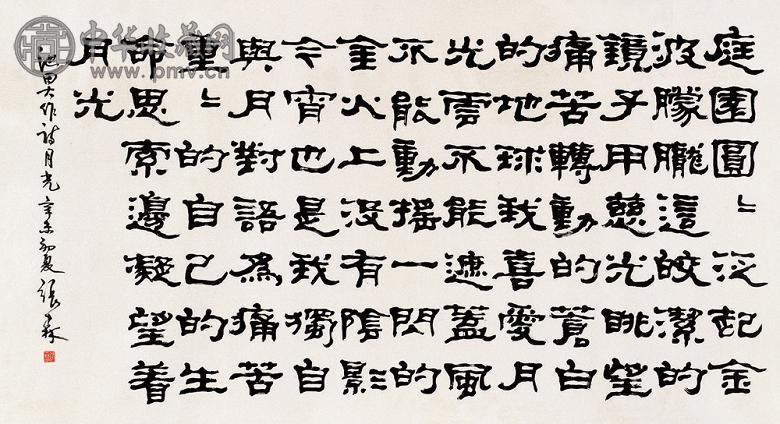 庭園圓〻泛起金
波朦朧這皎潔的
鏡子用慈光眺望
痛苦轉動的蒼白
的地球我喜愛月
光雲不能遮蓋風
不能動搖一閃的
金火上沒有陰影
今宵也是我獨自
與月對語為痛苦
重〻的自己的生
命思索邊凝望着
月光
池田大作詩月光 辛未初夏 張森
中华收藏网
www.pmv.cn